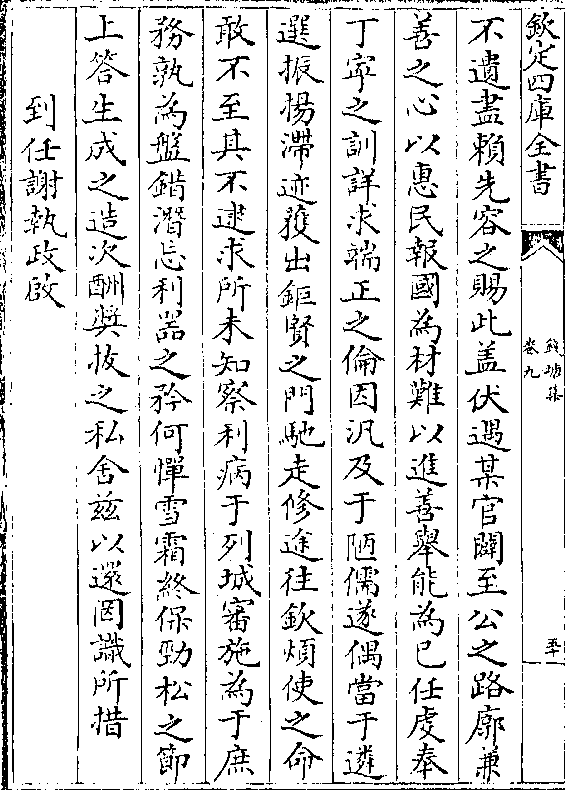 欽定四庫全書
錢塘集
卷九
五十
不遺盡賴先容之賜此盖伏遇某官闢至公之路廓兼
善之心以惠民報國為材難以進善舉能為已任虔奉
丁寜之訓詳求端正之倫因汎及于陋儒遂偶當于遴
選振楊滯迹獲出鉅賢之門馳走修途往欽煩使之命
敢不至其不逮求所未知察利病于列城審施為于庶
務孰為盤錯潛忘利器之矜何憚雪霜終保勁松之節
上答生成之造次酬奬拔之私舍兹以還罔識所措
到任謝執政啟